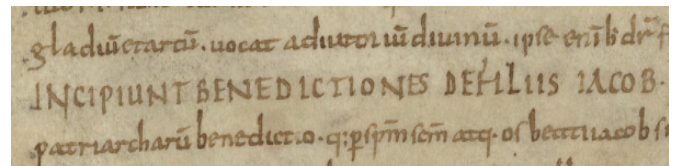 gladiū et arcū . uocat adiutoriū diuinū . ipse enī b dr̄ f
INCIPIUNT BENEDICTIONES DE FILIIS IACOB .
patriarcharū benedictio . q; ꝑ sp̄m sc̄m atq. os beati iacob